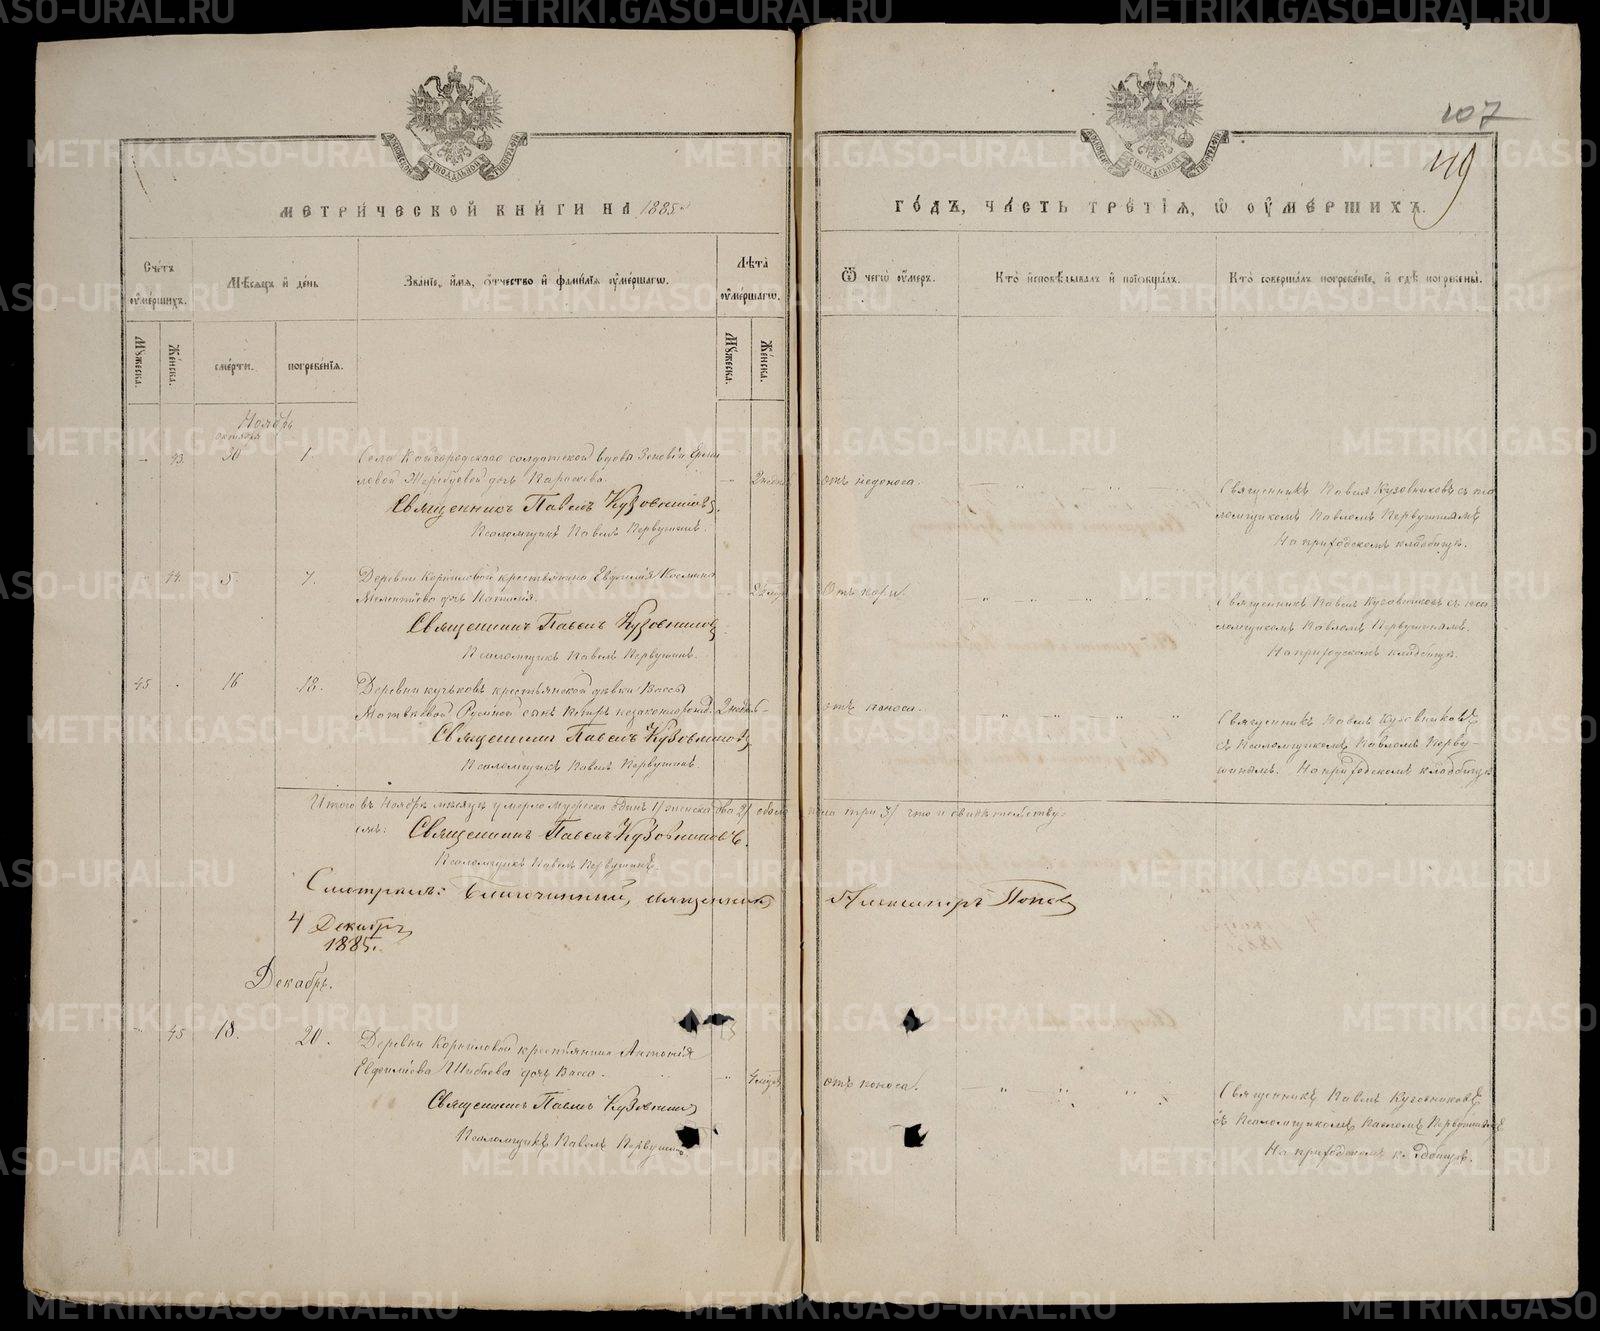 107
49
МЕТРИЧЕСКОЙ КНИГИ НА 1885й
ГОДЪ, ЧАСТЬ ТРЕТІЯ, Ѿ ОУМЕРШИХЪ.
Счетъ оумершихъ.
Мѣсяцъ и день
Званіе, имя, отчество и фамилія оумершагѡ.
Лѣта оумершагѡ.
Ѿ чегѡ оумеръ.
Кто исповѣдывалъ и пріобщалъ.
Кто совершалъ погребеніе, и гдѣ погребены.
Мужеска.
Женска.
смерти.
погребенія.
Мужеска.
Женска.
Ноябрь
октября
43. 30 1. Села Кайгородскаго солдатской вдовы Зеновіи
дочь Параскева. 2 недѣл отъ недоноса.
Священникъ Павелъ Кузовниковъ.
Псаломщикъ Павелъ Первушинъ.
Священникъ Павелъ Кузовниковъ съ пса
ломщикомъ Павломъ Первушинымъ
На приходскомъ кладбищѣ.
44. 5. 7. Деревни Корниловой крестьянина Евфимія Космина
Мелентіева дочь Наталія. Отъ кори.
Священникъ Павелъ Кузовниковъ
Псаломщикъ Павелъ Первушинъ.
Священникъ Павелъ Кузовниковъ съ пса
ломщикомъ Павломъ Первушинымъ.
На приходскомъ кладбищѣ.
45 16 18. Деревни крестьянской дѣвки Вассы
сынъ Петръ незаконнорожд. 2 недѣл отъ поноса.
Священникъ Павелъ Кузовниковъ
Псаломщикъ Павелъ Первушинъ.
Священникъ Павелъ Кузовниковъ
съ Псаломщикомъ Павломъ Перву-
шинымъ. На приходскомъ кладбищѣ
Итого въ Ноябрѣ мѣсяцѣ умерло мужеска одинъ 1/ женска два 2/ обоего пола три 3/ что и свидѣтельству-
емъ: Священникъ Павелъ Кузовниковъ.
Псаломщикъ Павелъ Первушинъ
Смотрѣлъ: Благочинный, священникъ Александръ Поповъ
4 Декабря
1885.
Декабрь.
45 18. 20. Деревни Корниловой крестьянина Антонія
Евфиміева дочь Васса. отъ поноса.
Священникъ Павелъ Кузовник
Псаломщикъ Павелъ Первушинъ.
Священникъ Павелъ Кузовниковъ
съ Псаломщикомъ Павломъ Первушинымъ
На приходскомъ кладбищѣ.
METRIKI.GASO-URAL.RU